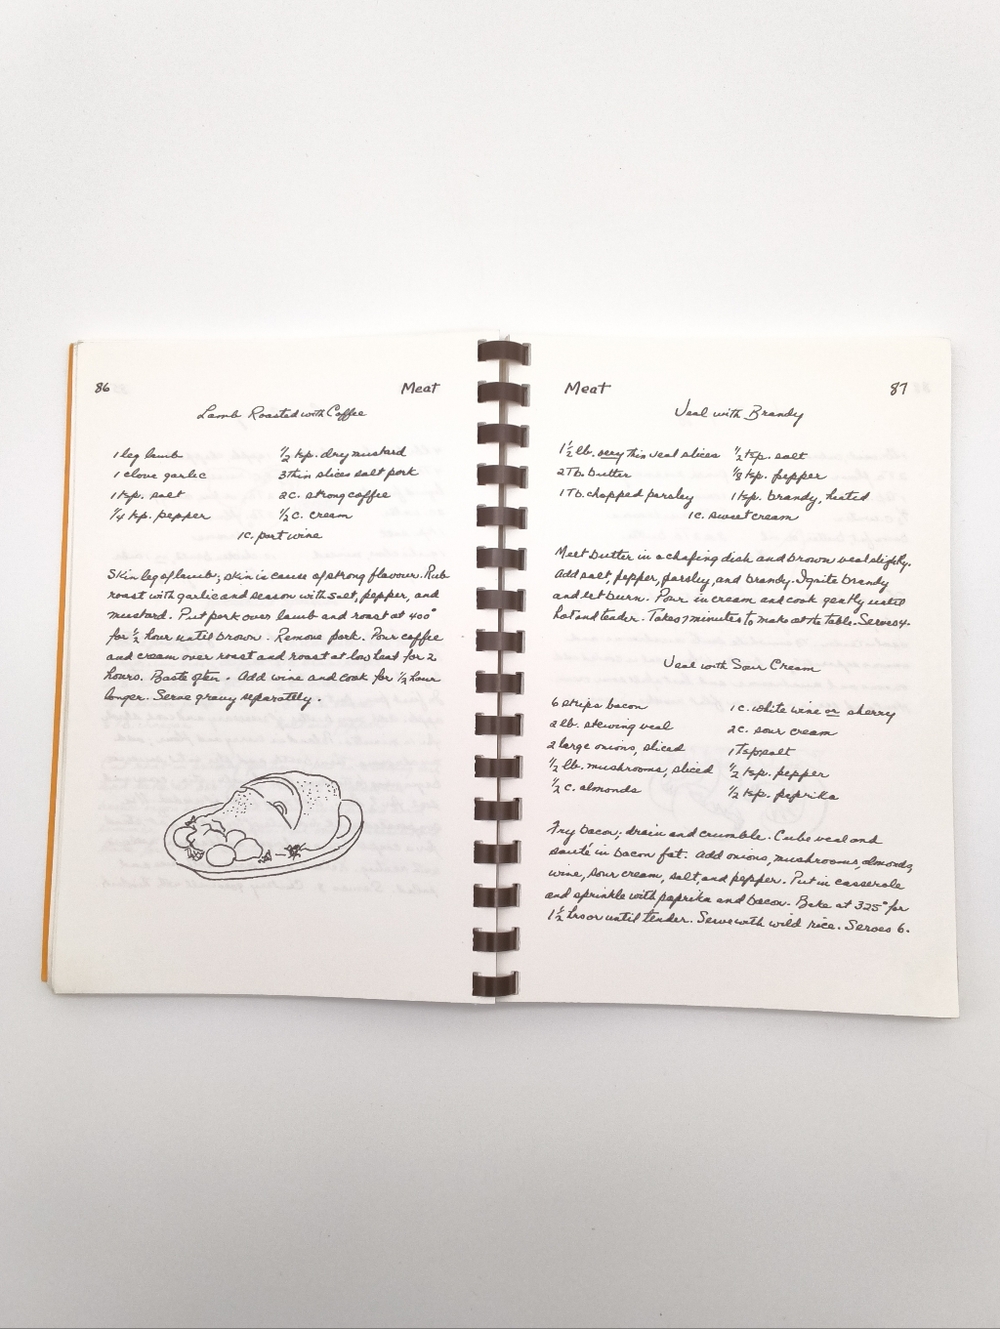 86
Meat
Lamb Roasted with Coffee
1 leg lamb
1 clove garlic
1 tsp. salt
1/4 tsp. pepper
1/2 tsp. dry mustard
3 thin slices salt pork
2 c. strong coffee
1/2 c. cream
1 c. port wine
Skin leg of lamb; skin is cause of strong flavour. Rub
roast with garlic and season with salt, pepper, and
mustard. Put pork over lamb and roast at 400°
for 1/2 hour until brown. Remove pork. Pour coffee
and cream over roast and roast at low heat for 2
hours. Baste often. Add wine and cook for 1/2 hour
longer. Serve gravy separately.
Meat
87
Veal with Brandy
1 1/2 lb. very thin veal slices
2 Tb. butter
1 Tb. chopped parsley
1/2 tsp. salt
1/8 tsp. pepper
1 tsp. brandy, heated
1 c. sweet cream
Melt butter in a chafing dish and brown veal slightly.
Add salt, pepper, parsley, and brandy. Ignite brandy
and let burn. Pour in cream and cook gently until
hot and tender. Takes 7 minutes to make at the table. Serves 4.
Veal with Sour Cream
6 strips bacon
2 lb. stewing veal
2 large onions, sliced
1/2 lb. mushrooms, sliced
1/2 c. almonds
1 c. white wine or sherry
2 c. sour cream
1 Tsp salt
1/2 tsp. pepper
1/2 tsp. paprika
Fry bacon; drain and crumble. Cube veal and
sauté in bacon fat. Add onions, mushrooms, almonds,
wine, sour cream, salt, and pepper. Put in casserole
and sprinkle with paprika and bacon. Bake at 325° for
1 1/2 hrs or until tender. Serve with wild rice. Serves 6.